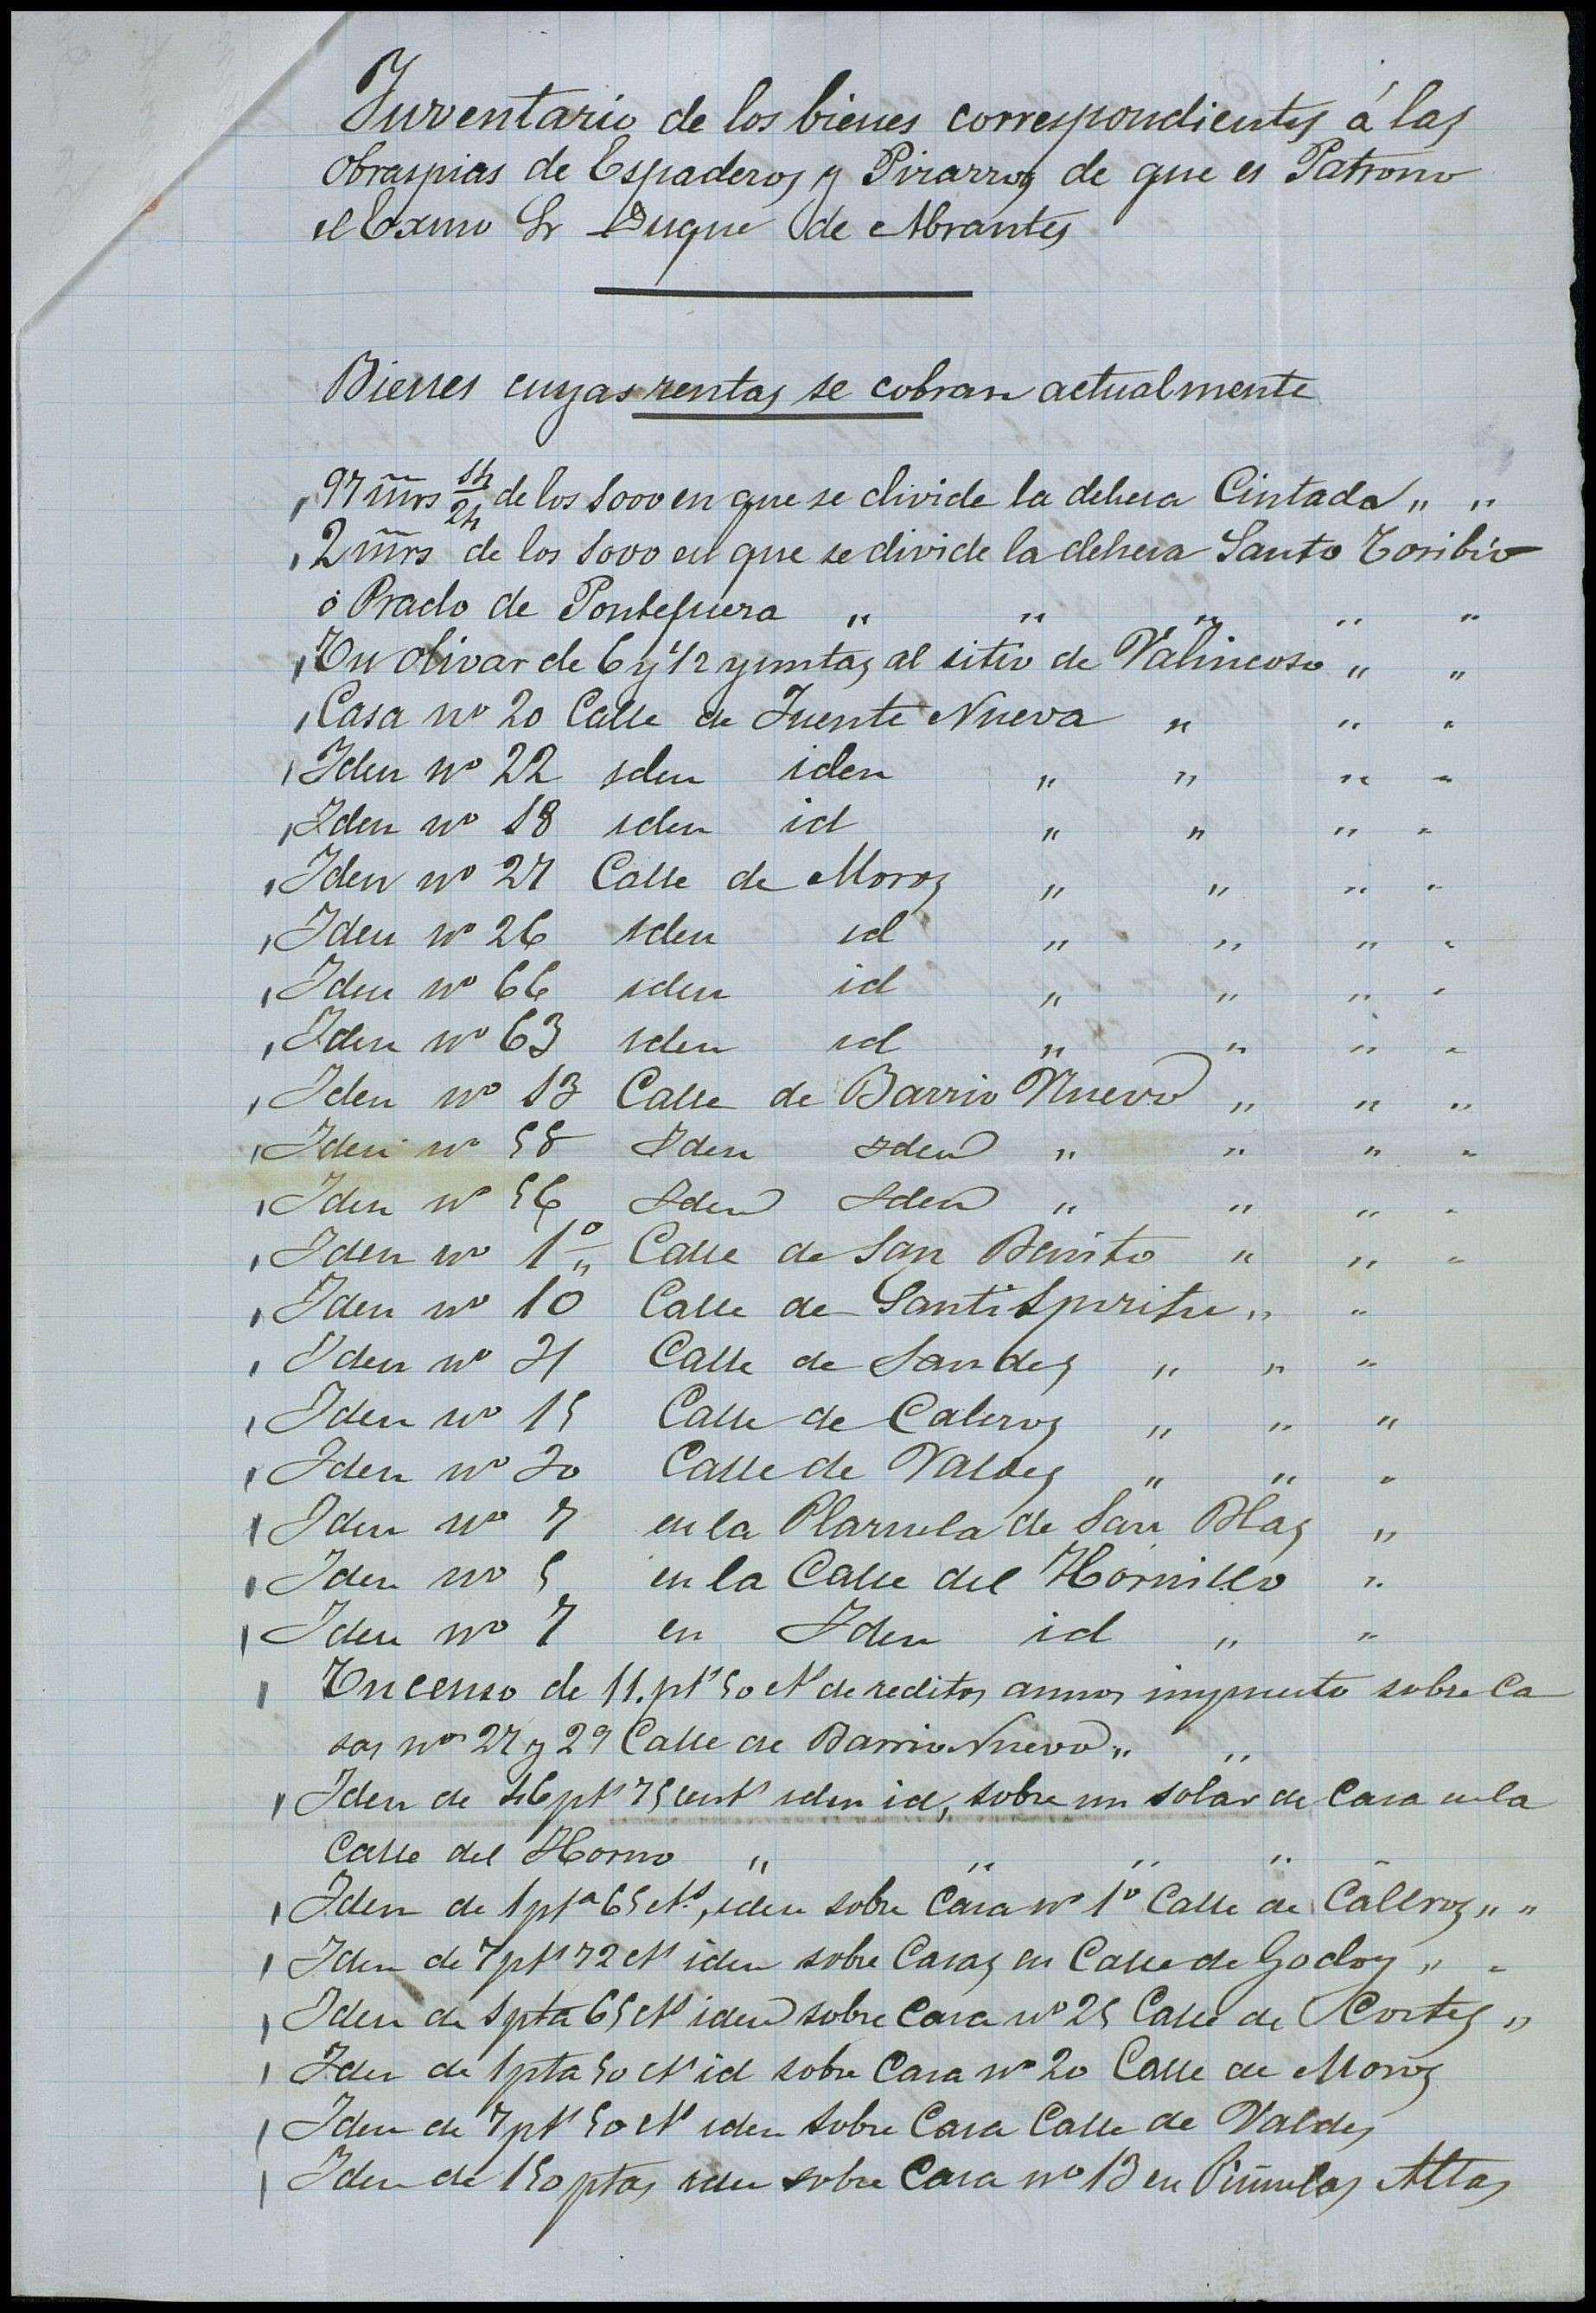 Inventario de los bienes correspondientes á las
obraspias de Espaderos y Pizarros de que es Patrono
el Exmo Sr Duque de Abrantes
Bienes cuyas rentas se cobran actualmente
97 mrs de los 1000 en que se divide la dehesa Cintada " "
2 mrs de los 1000 en que se divide la dehesa Santo Toribio
ó Prado de Pontefuera " " " " "
Un olivar de 6 y 1/2 yuntas al sitio de " "
Casa nº 20 Calle de Fuente Nueva " " "
Iden nº 22 iden iden " " " "
Iden nº 18 iden id " " " "
Iden nº 27 Calle de Moros " " " "
Iden nº 26 iden id " " " "
Iden nº 66 iden id " " " "
Iden nº 63 iden id " " " "
Iden nº 13 Calle de Barrio Nuevo " " "
Iden nº 58 Iden Iden " " " "
Iden nº 56 Iden Iden " " " "
Iden nº 1º " Calle de San Benito " " "
Iden nº 10 Calle de Santi Spiritu " "
Iden nº 21 Calle de Sandes " " "
Iden nº 15 Calle de Caleros " " "
Iden nº 20 Calle de Valdes " " "
Iden nº 7 en la Plazuela de San Blas "
Iden nº 5 en la Calle del Hornillo "
Iden nº 7 en Iden id " "
Un censo de 11. pts 50 cts de reditos annos impuesto sobre Ca
sas nos 27 y 29 Calle de Barrio Nuevo " "
Iden de 46 pts 75 cents iden id, sobre un solar de Casa en la
Calle del Horno " " " " "
Iden de 1 pta 65 cts, iden sobre Casa nº 1º Calle de Caleros " "
Iden de 7 pts 72 cts iden sobre Casas en Calle de Godoy " "
Iden de 1 pta 65 cts iden sobre Casa nº 25 Calle de Cortes "
Iden de 1 pta 50 cts id sobre Casa nº 20 Calle de Moros
Iden de 7 pts 50 cts iden sobre Casa Calle de Valdes
Iden de 150 ptas iden sobre Casa nº 13 en Piñuelas Altas